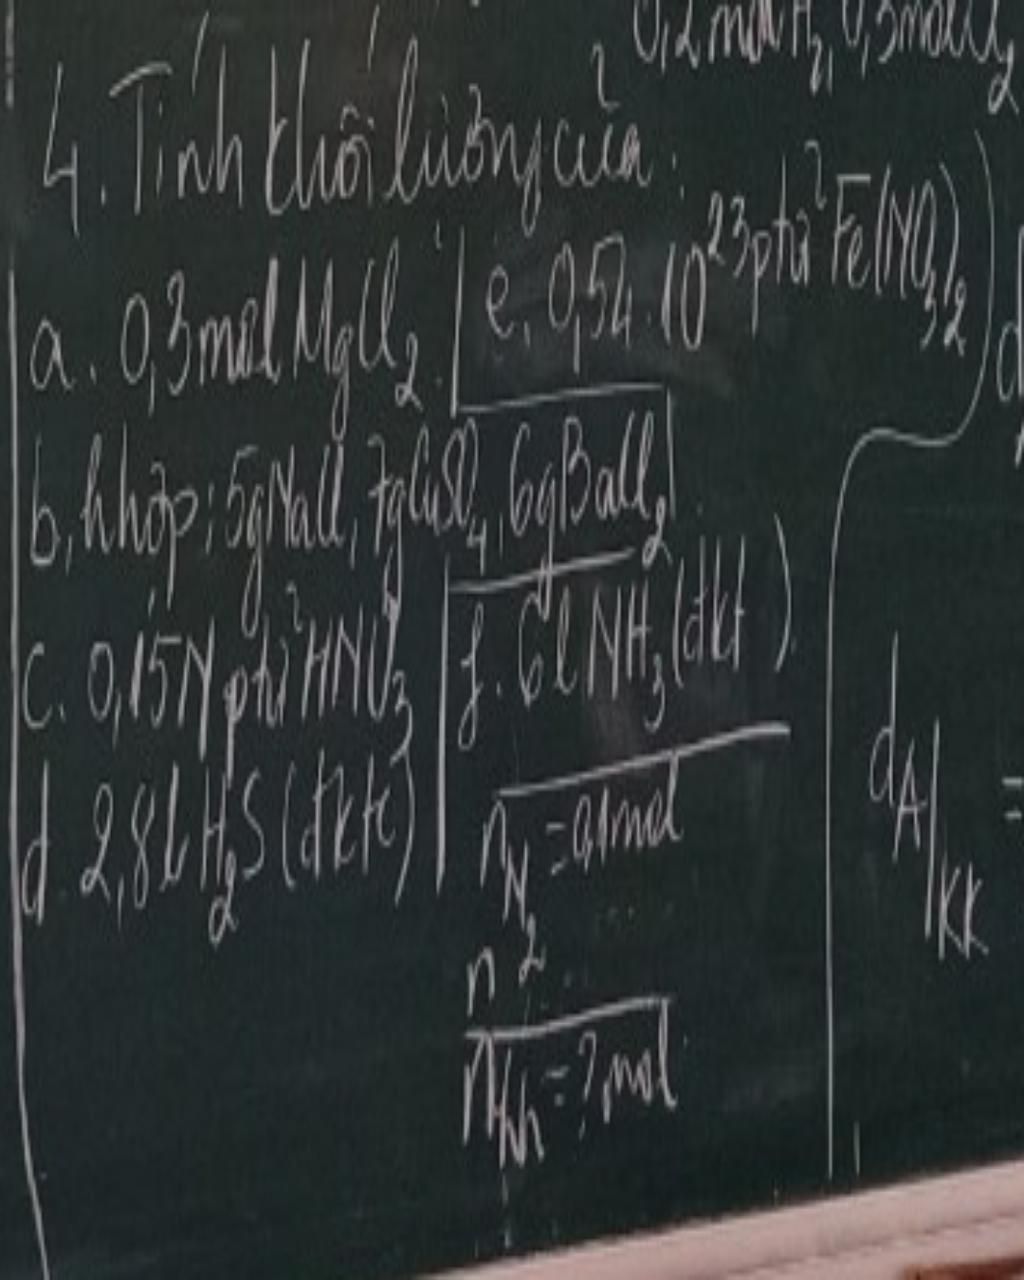 0,2 mol H₂, 0,3 mol Cl₂
4. Tính khối lượng của:
a. 0,3 mol MgCl₂.
b, hhợp: 5g NaCl, 7g CuSO₄, 6g BaCl₂
c. 0,15N ptử HNO₃
d. 2,8l H₂S (đktc)
e. 0,54.10²³ ptử Fe(NO₃)₂
f. 6l NH₃ (đkt )
n N₂ = 0,1 mol
n
n hh = ? mol
d A/KK =